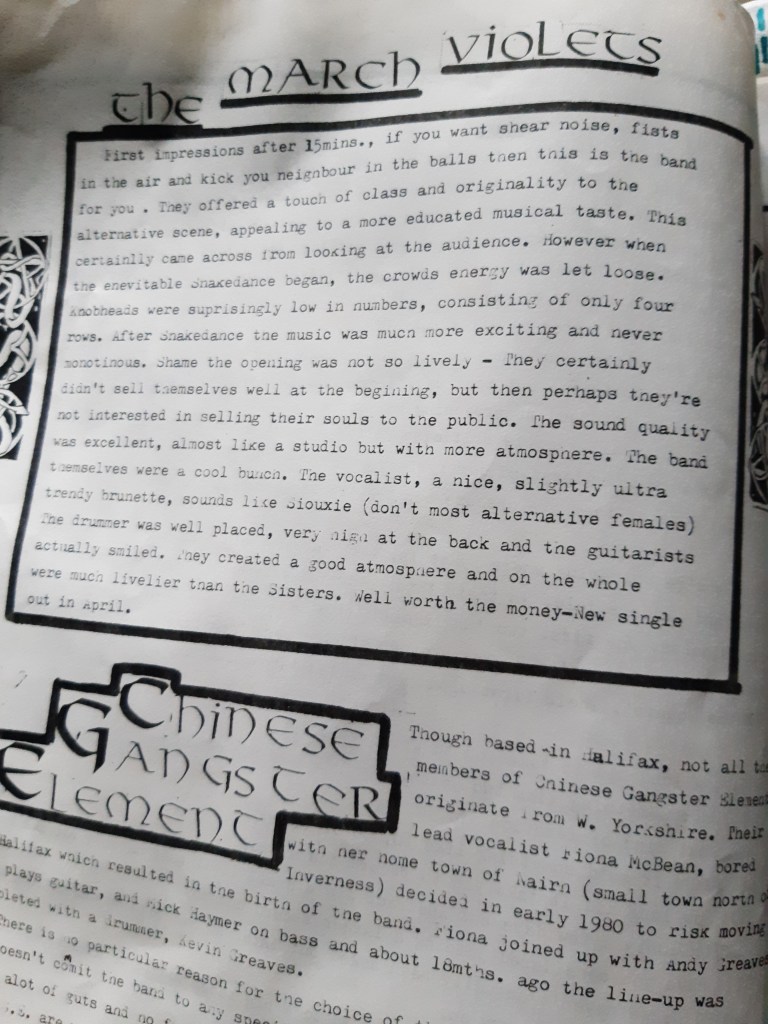 The MARCH VIOLETS
First impressions after 15mins., if you want shear noise, fists
in the air and kick you neighbour in the balls then this is the band
for you . They offered a touch of class and originality to the
alternative scene, appealing to a more educated musical taste. This
certainlly came across from looking at the audience. However when
the enevitable Snakedance began, the crowds energy was let loose.
Knobheads were suprisingly low in numbers, consisting of only four
rows. After Snakedance the music was much more exciting and never
monotinous. Shame the opening was not so lively - They certainly
didn't sell themselves well at the begining, but then perhaps they're
not interested in selling their souls to the public. The sound quality
was excellent, almost like a studio but with more atmosphere. The band
themselves were a cool bunch. The vocalist, a nice, slightly ultra
trendy brunette, sounds like Siouxie (don't most alternative females)
The drummer was well placed, very high at the back and the guitarists
actually smiled. They created a good atmosphere and on the whole
were much livelier than the Sisters. Well worth the money-New single
out in April.
CHINESE
GANGSTER
ELEMENT
Though based in Halifax, not all
members of Chinese Gangster Element
originate from W. Yorkshire. Their
lead vocalist Fiona McBean, bored
with her home town of Nairn (small town north
Inverness) decided in early 1980 to risk moving
Halifax which resulted in the birth of the band. Fiona joined up with Andy Greaves
plays guitar, and Mick Haymer on bass and about 18mths. ago the line-up was
with a drummer, Kevin Greaves.
There is no particular reason for the choice of
comit the band to any
alot of guts and no
are